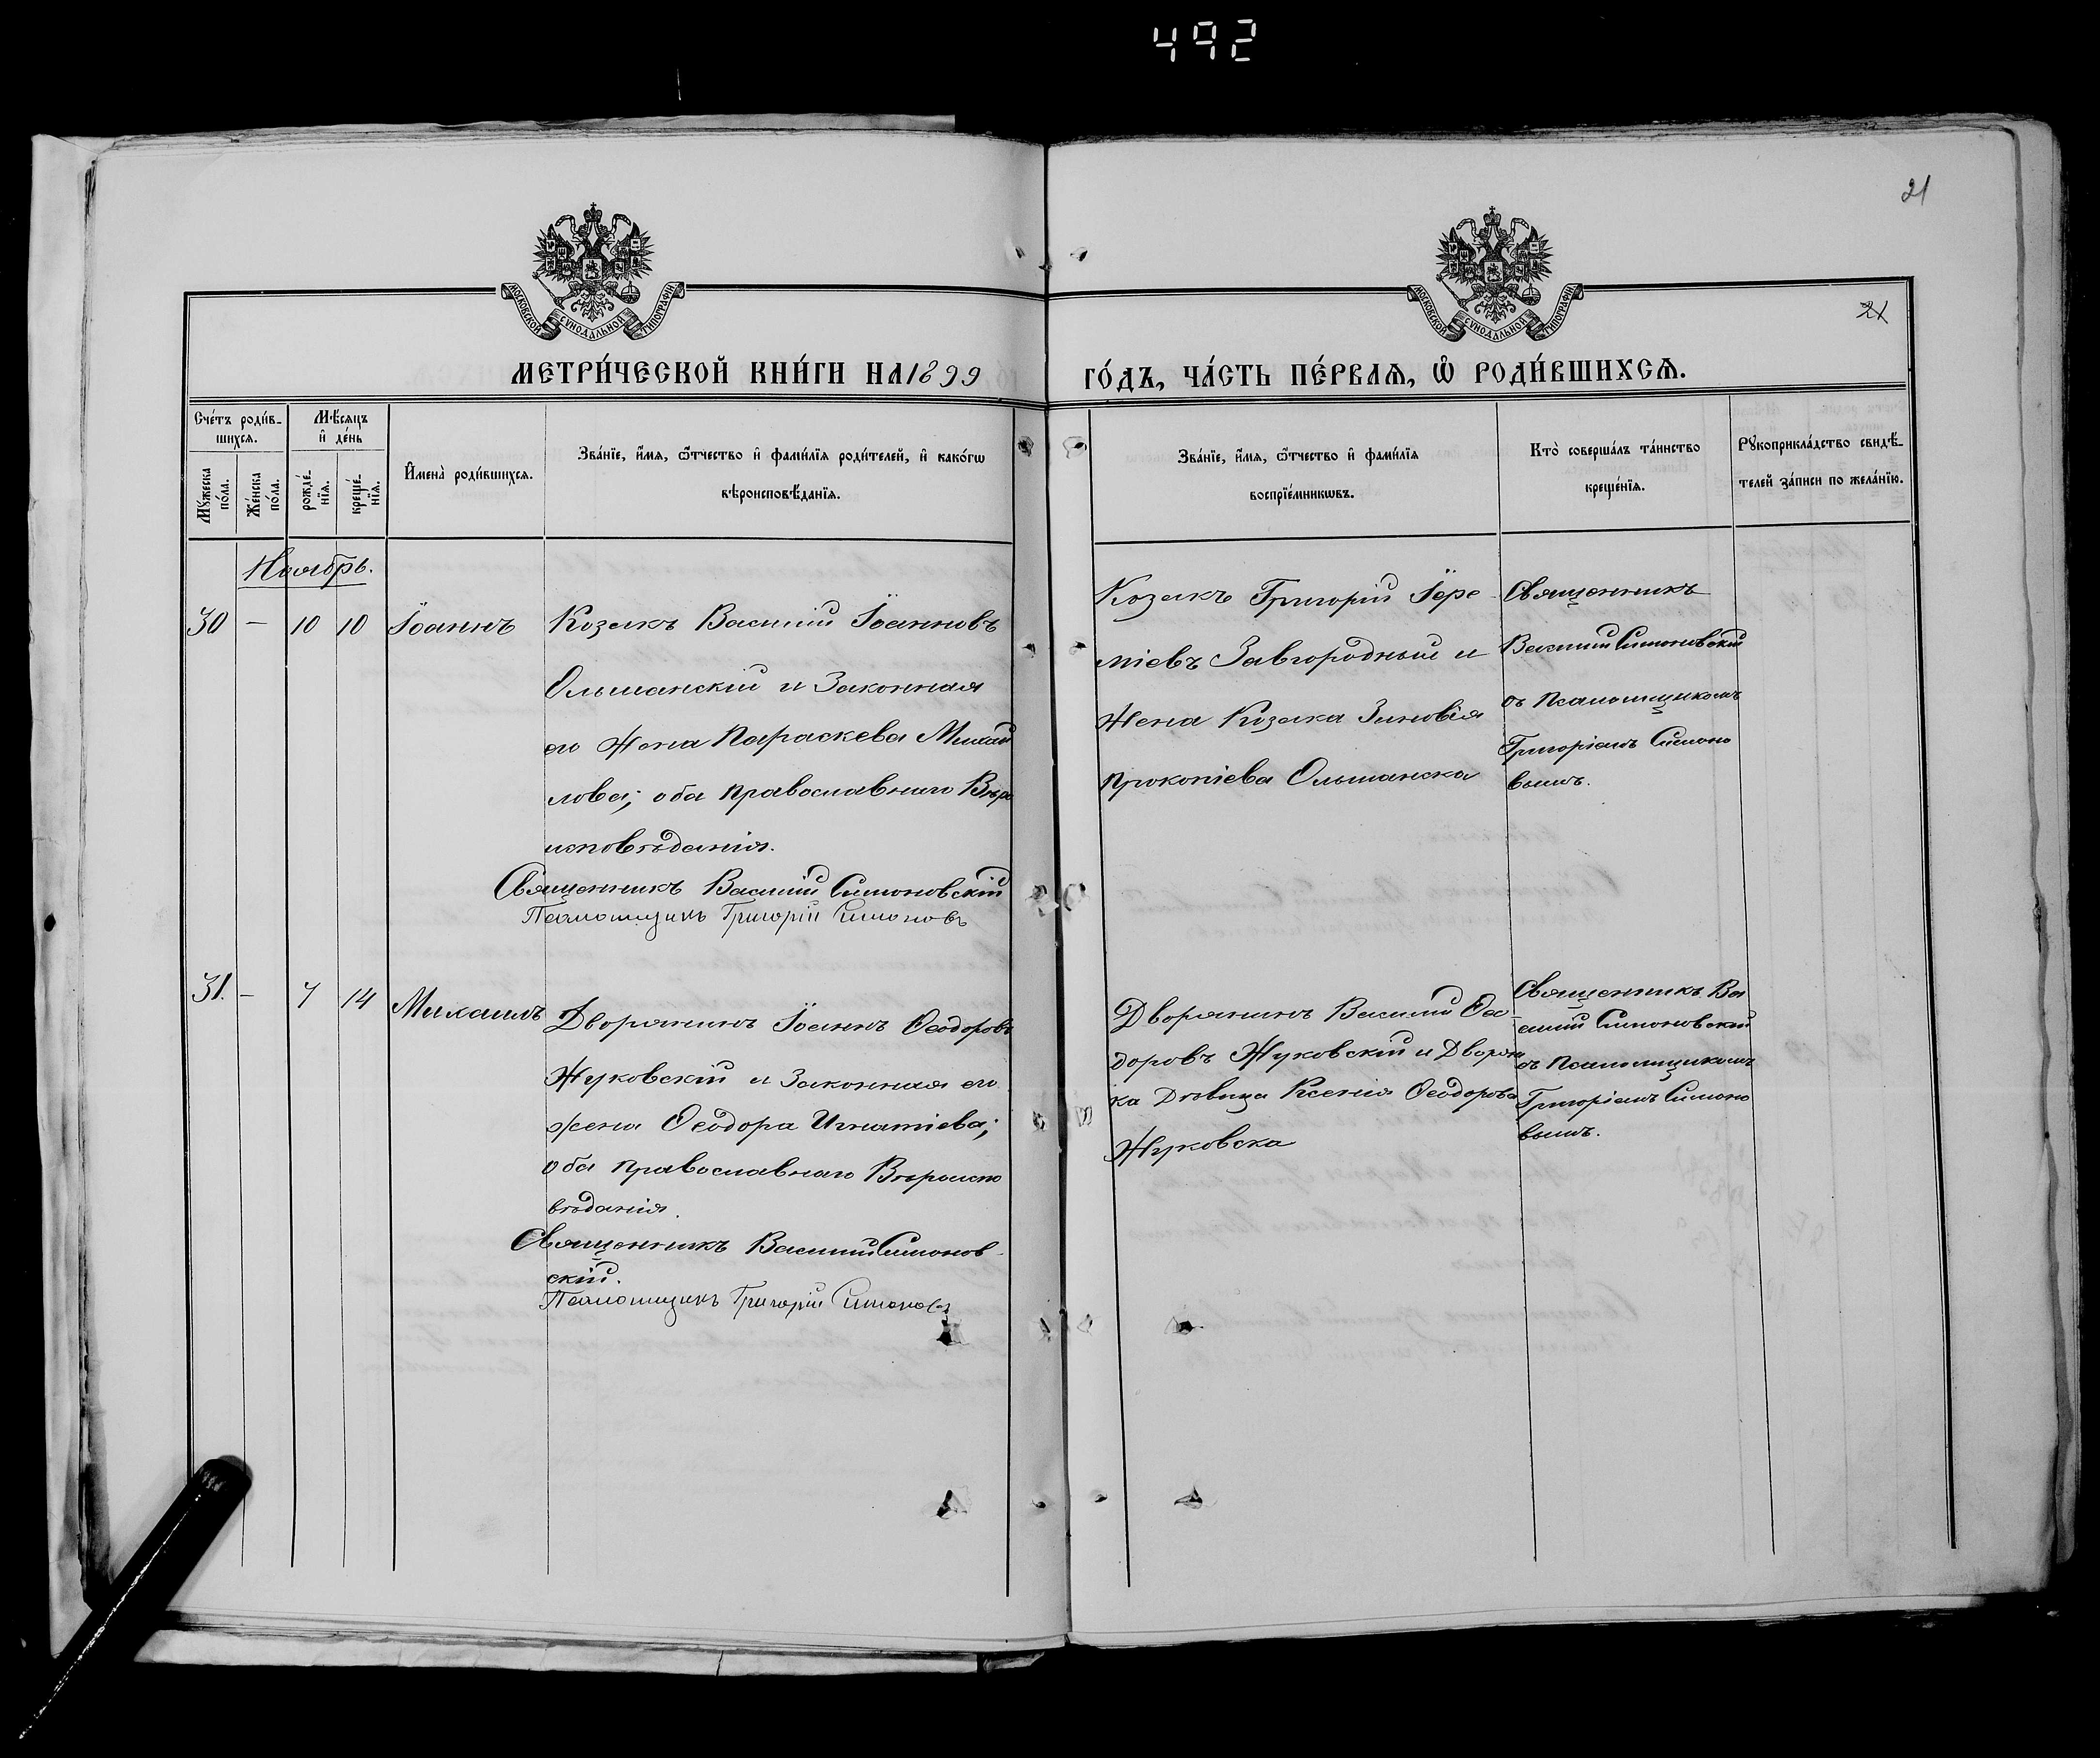 492
21
МОСКОВСКОЙ СѴНОДАЛЬНОЙ ТИПОГРАФІИ
МОСКОВСКОЙ СѴНОДАЛЬНОЙ ТИПОГРАФІИ
21
МЕТРИ́ЧЕСКОЙ КНИ́ГИ НА 1899
ГО́ДЪ, ЧА́СТЬ ПЕ́РВАЯ, Ѽ РОДИ́ВШИХСЯ.
Сче́тъ роди́в-
шихся.
Мѣ́сяцъ
и҆ де́нь
Мꙋ́жеска
по́ла.
Же́нска
по́ла.
рожде́-
нїя.
креще́-
нїя.
И҆мена̀ роди́вшихся.
Зва́нїе, и҆́мя, ѻ҆́тчество и҆ фами́лїя роди́телей, и҆ како́гѡ
вѣроисповѣ́данїя.
Зва́нїе, и҆́мя, ѻ҆́тчество и҆ фами́лїя
воспрїе́мникѡвъ.
Кто̀ соверша́лъ та́инство
креще́нїя.
Рꙋкоприкла́дство свидѣ́-
телей за́писи по жела́нїю.
Ноябрь.
30 – 10 10 Іоаннъ
Козакъ Василій Іоанновъ
Ольшанскій и Законная
его Жена Параскева Михай
лова; оба православнаго Вѣро
исповѣданія.
Священникъ Василій Симоновскій
Псаломщикъ Григорій Симоновъ
Козакъ Григорій Іере
міевъ Завгородный и
Жена Козака Зиновія
Прокопіева Ольшанска
Священникъ
Василій Симоновскій
съ Псаломщикомъ
Григоріемъ Симоно
вымъ.
31. – 7 14 Михаилъ
Дворянинъ Іоаннъ Ѳеодоровъ
Жуковскій и Законная его
жена Ѳеодора Игнатіева;
оба православнаго Вѣроиспо
вѣданія.
Священникъ Василій Симонов-
скій.
Псаломщикъ Григорій Симоновъ
Дворянинъ Василій Ѳео-
доровъ Жуковскій и Дворян
ка Дѣвица Ксенія Ѳеодорова
Жуковска
Священникъ Ва
силій Симоновскій
съ Псаломщикомъ
Григоріемъ Симоно
вымъ.